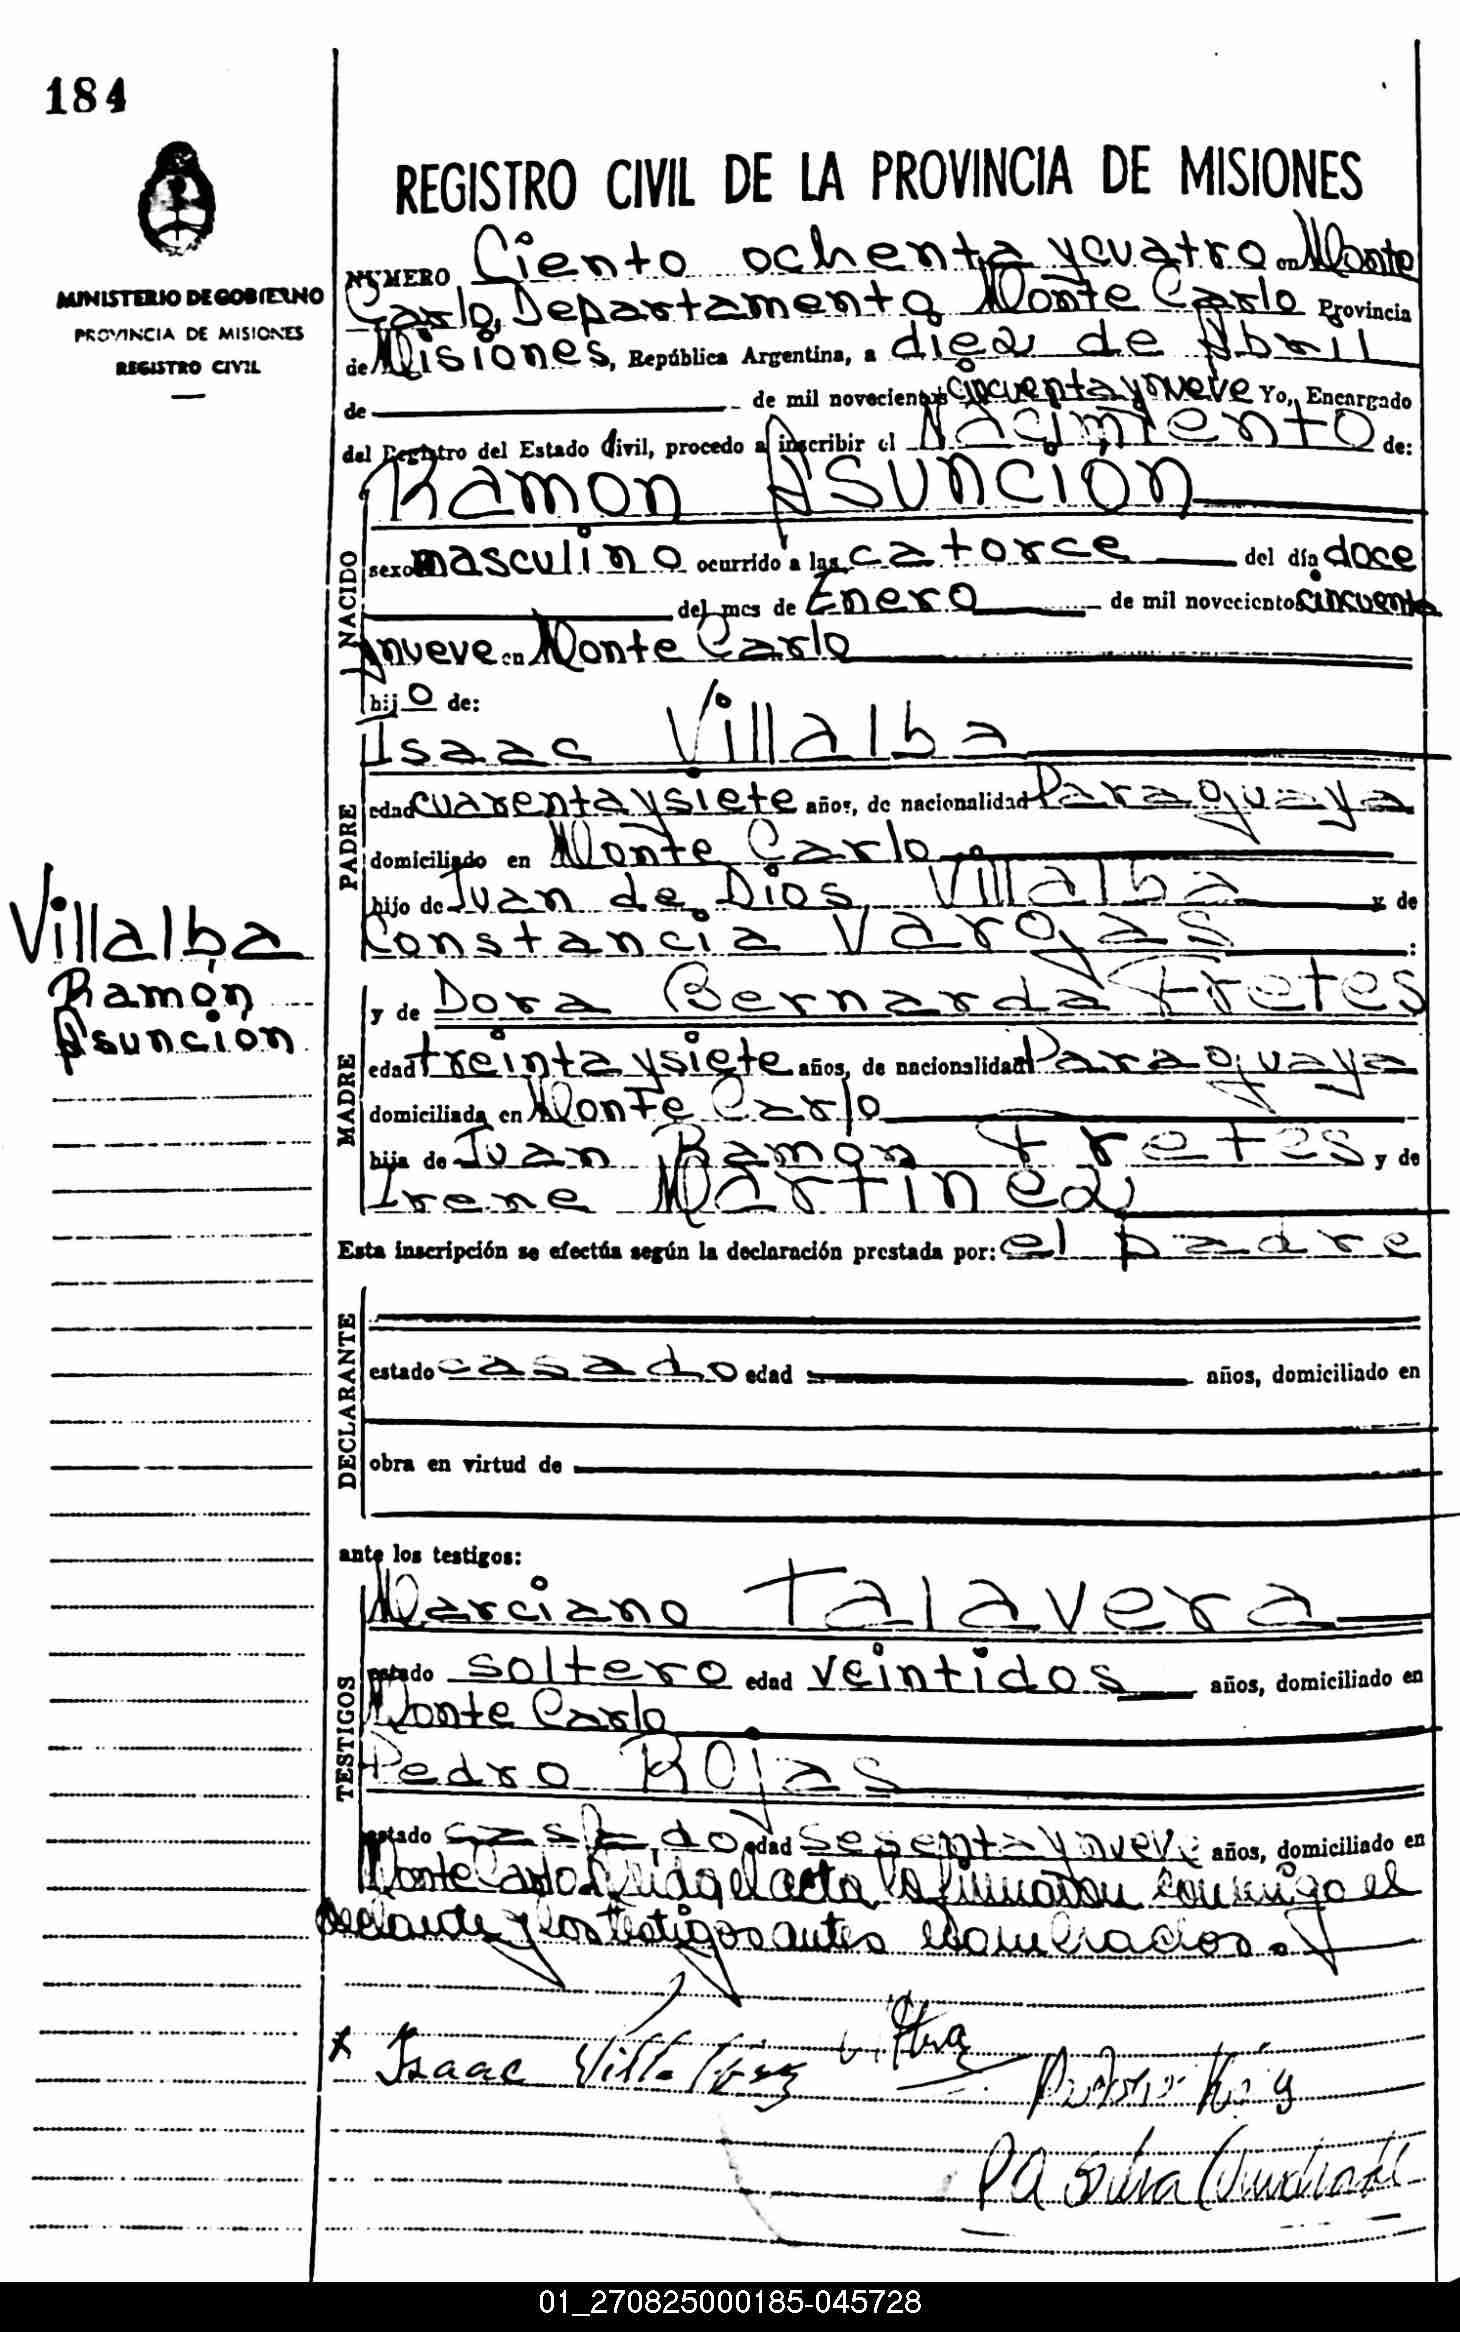 184
MINISTERIO DE GOBIERNO
PROVINCIA DE MISIONES
REGISTRO CIVIL
REGISTRO CIVIL DE LA PROVINCIA DE MISIONES
NUMERO Ciento ochenta y cuatro en Monte
Carlo, Departamento Monte Carlo Provincia
de Misiones, República Argentina, a diez de Abril
de de mil novecientos cincuenta y nueve Yo, Encargado
del Registro del Estado Civil, procedo a inscribir el Nacimiento de:
NACIDO
Ramon Asunción
sexo masculino ocurrido a las catorce del día doce
del mes de Enero de mil novecientos cincuenta
y nueve en Monte Carlo
hijo de:
PADRE
Isaac Villalba
edad cuarenta y siete años, de nacionalidad Paraguaya
domiciliado en Monte Carlo
hijo de Juan de Dios Villalba y de
Constancia Vargas :
Villalba
Ramón
Asunción
MADRE
y de Dora Bernarda Fretes
edad treinta y siete años, de nacionalidad Paraguaya
domiciliada en Monte Carlo
hija de Juan Ramon Fretes y de
Irene Martinez
Esta inscripción se efectúa según la declaración prestada por: el padre
DECLARANTE
estado casado edad años, domiciliado en
obra en virtud de
ante los testigos:
TESTIGOS
Marciano Talavera
estado soltero edad veintidos años, domiciliado en
Monte Carlo
Pedro Rojas
estado casado edad sesenta y nueve años, domiciliado en
Monte Carlo. Leida el acta la firmaron conmigo el
declarante y los testigos antes nombrados.
x Isaac Villalba
01_270825000185-045728